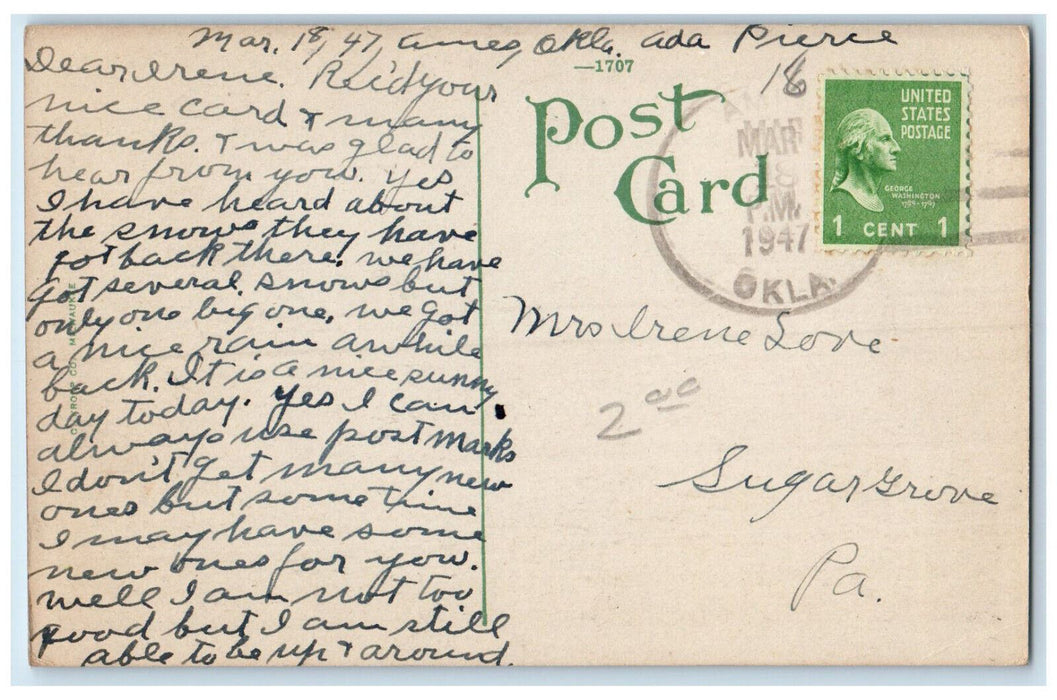 Mar, 18, 47, Ames, Okla. Ada Pierce
Dear Irene. Rec'd your
nice card & many
thanks. I was glad to
hear from you. Yes
I have heard about
the snows they have
got back there. We have
got several snows but
only one big one. We got
a nice rain awhile
back. It is a nice sunny
day today. Yes I can
always use post marks
I don't get many new
ones but some time
I may have some
new ones for you.
Well I am not too
good but I am still
able to be up & around.
—1707
Post
Card
18
MAR
P.M.
1947
OKLA.
UNITED
STATES
POSTAGE
GEORGE
WASHINGTON
1789-1797
1 CENT 1
Mrs Irene Love
2 00
Sugar Grove
Pa.
MILWAUKEE